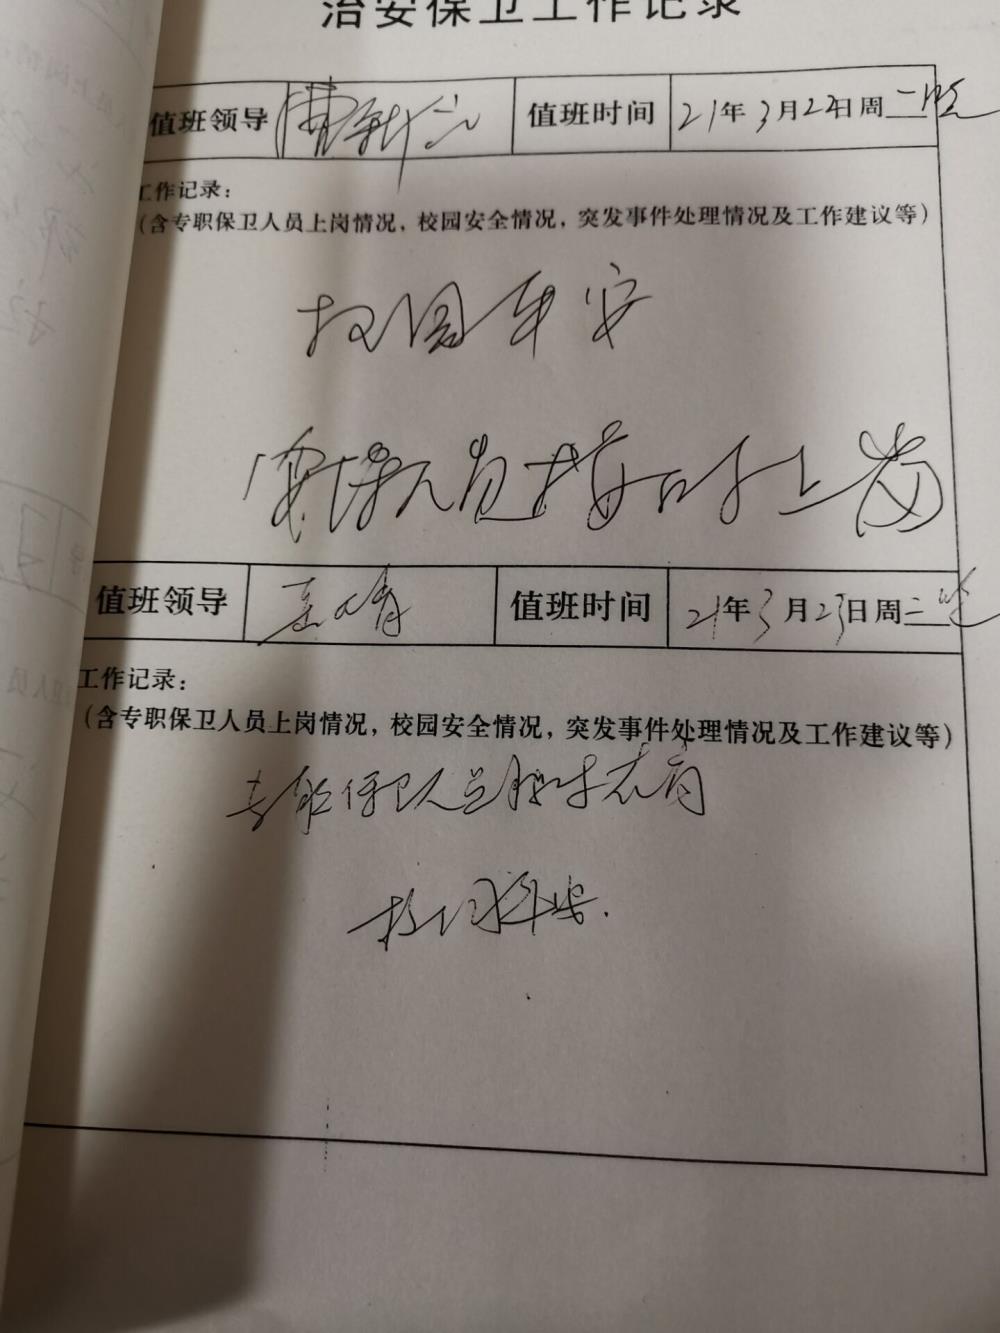 治安保卫工作记录
值班领导 值班时间 21年3月22日周二晚
工作记录：
（含专职保卫人员上岗情况，校园安全情况，突发事件处理情况及工作建议等）
校园平安
安保人员按时上岗
值班领导 值班时间 21年3月23日周二晚
工作记录：
（含专职保卫人员上岗情况，校园安全情况，突发事件处理情况及工作建议等）
专职保卫人员按时在岗
校园平安.